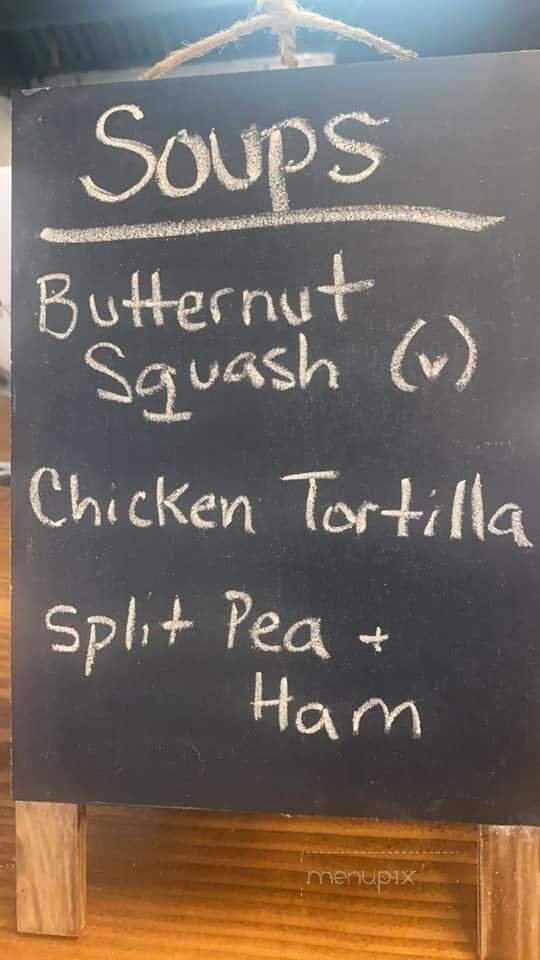 Soups
Butternut
Squash (v)
Chicken Tortilla
Split Pea +
Ham
menupix